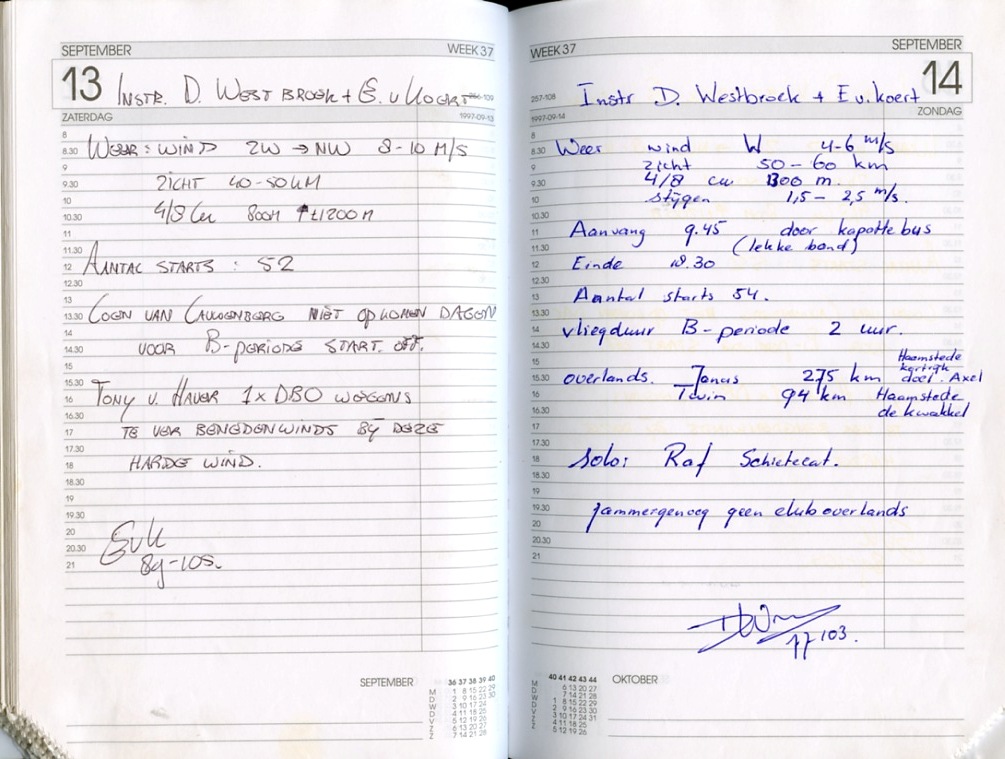 SEPTEMBER WEEK 37
13 INSTR. D. WESTBROEK + E. v KOERT
256-109
ZATERDAG 1997-09-13
8
8.30 WEER: WIND ZW → NW 8-10 M/S
9
9.30 ZICHT 40-50 KM
10
10.30 4/8 Cu 800M ↑ ±1200 M
11
11.30
12 AANTAL STARTS : 52
12.30
13
13.30 COEN VAN NIET OP KOMEN DAGEN
14
14.30 VOOR B-PERIODE START. OFF.
15
15.30
16 TONY v. HAVER 1x DBO WEGENS
16.30
17 TE VER BENEDENWINDS BY DEZE
17.30
18 HARDE WIND.
18.30
19
19.30
20
20.30 EvK
21 84-105.
SEPTEMBER
36 37 38 39 40
M 1 8 15 22 29
D 2 9 16 23 30
W 3 10 17 24
D 4 11 18 25
V 5 12 19 26
Z 6 13 20 27
Z 7 14 21 28
WEEK 37 SEPTEMBER
257-108 Instr D. Westbroek + E v. koert 14
1997-09-14 ZONDAG
8
8.30 Weer wind W 4-6 m/s
9 zicht 50-60 km
9.30 4/8 cu 1300 m.
10 stijgen 1,5 - 2,5 m/s.
10.30
11 Aanvang 9.45 door kapotte bus
11.30 (lekke band)
12 Einde 18.30
12.30
13 Aantal starts 54.
13.30
14 vliegduur B-periode 2 uur.
14.30
15 Haamstede
kortrijk
15.30 overlands. Janus 275 km doel. Axel
16 Twin 94 km Haamstede
16.30 de kwakkel
17
17.30
18 solo: Raf Schietecat.
18.30
19
19.30 jammergenoeg geen club overlands
20
20.30
21
77 103.
40 41 42 43 44 OKTOBER
M 6 13 20 27
D 7 14 21 28
W 1 8 15 22 29
D 2 9 16 23 30
V 3 10 17 24 31
Z 4 11 18 25
Z 5 12 19 26